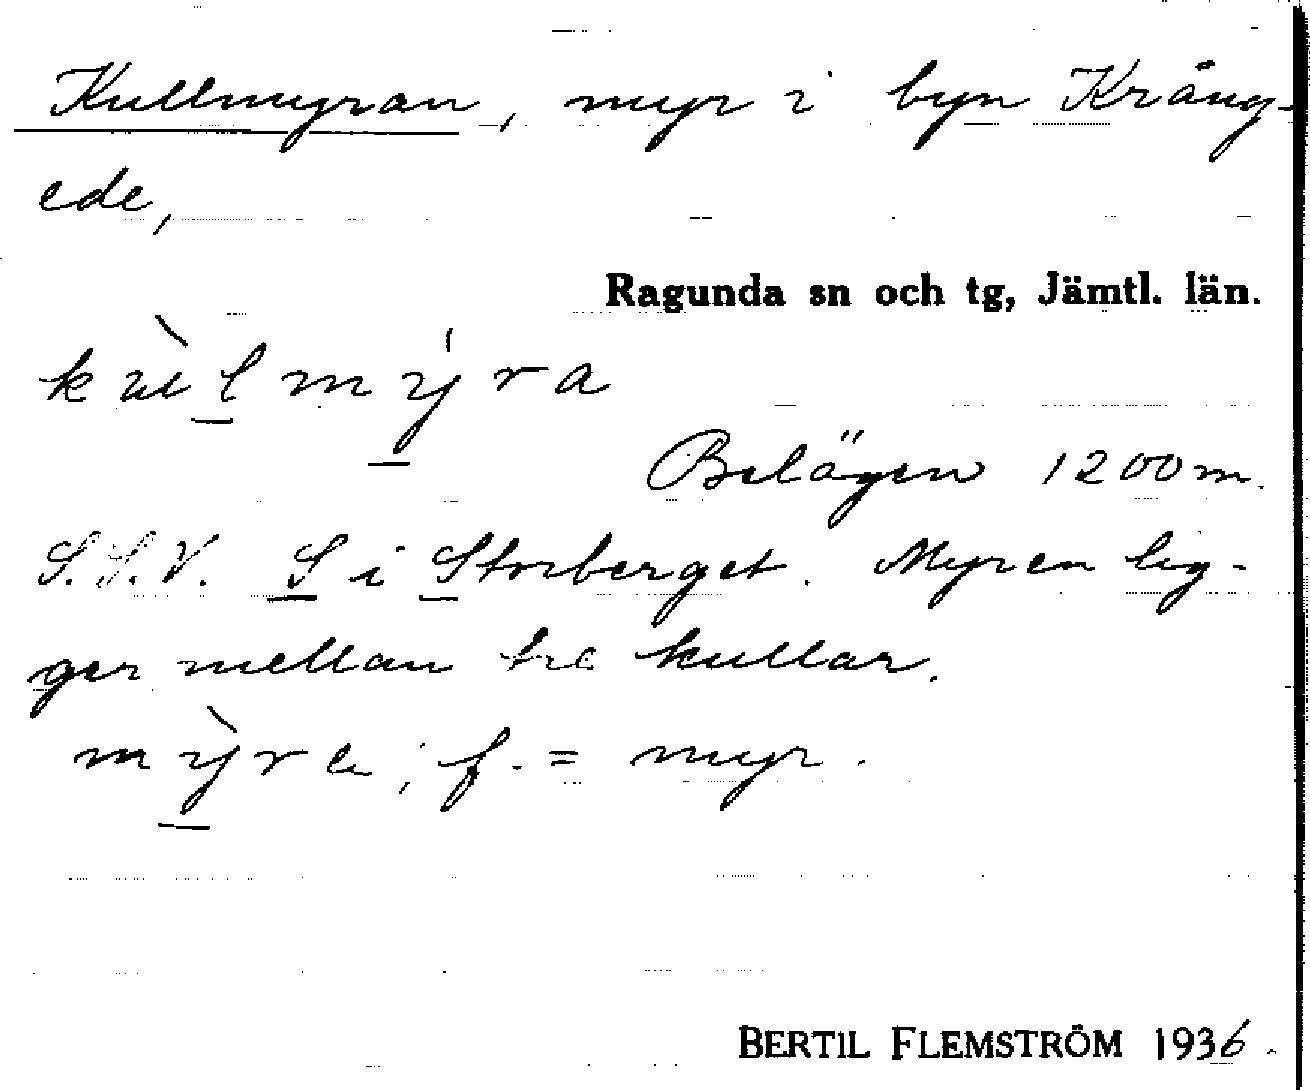 Kullmyran, myr i byn Krång-
ede,
Ragunda sn och tg, Jämtl. län.
kùlmýra
Belägen 1200 m.
S.S.V. S i Storberget. Myren lig-
ger mellan tre kullar.
mỳra, f. = myr.
BERTIL FLEMSTRÖM 1936.